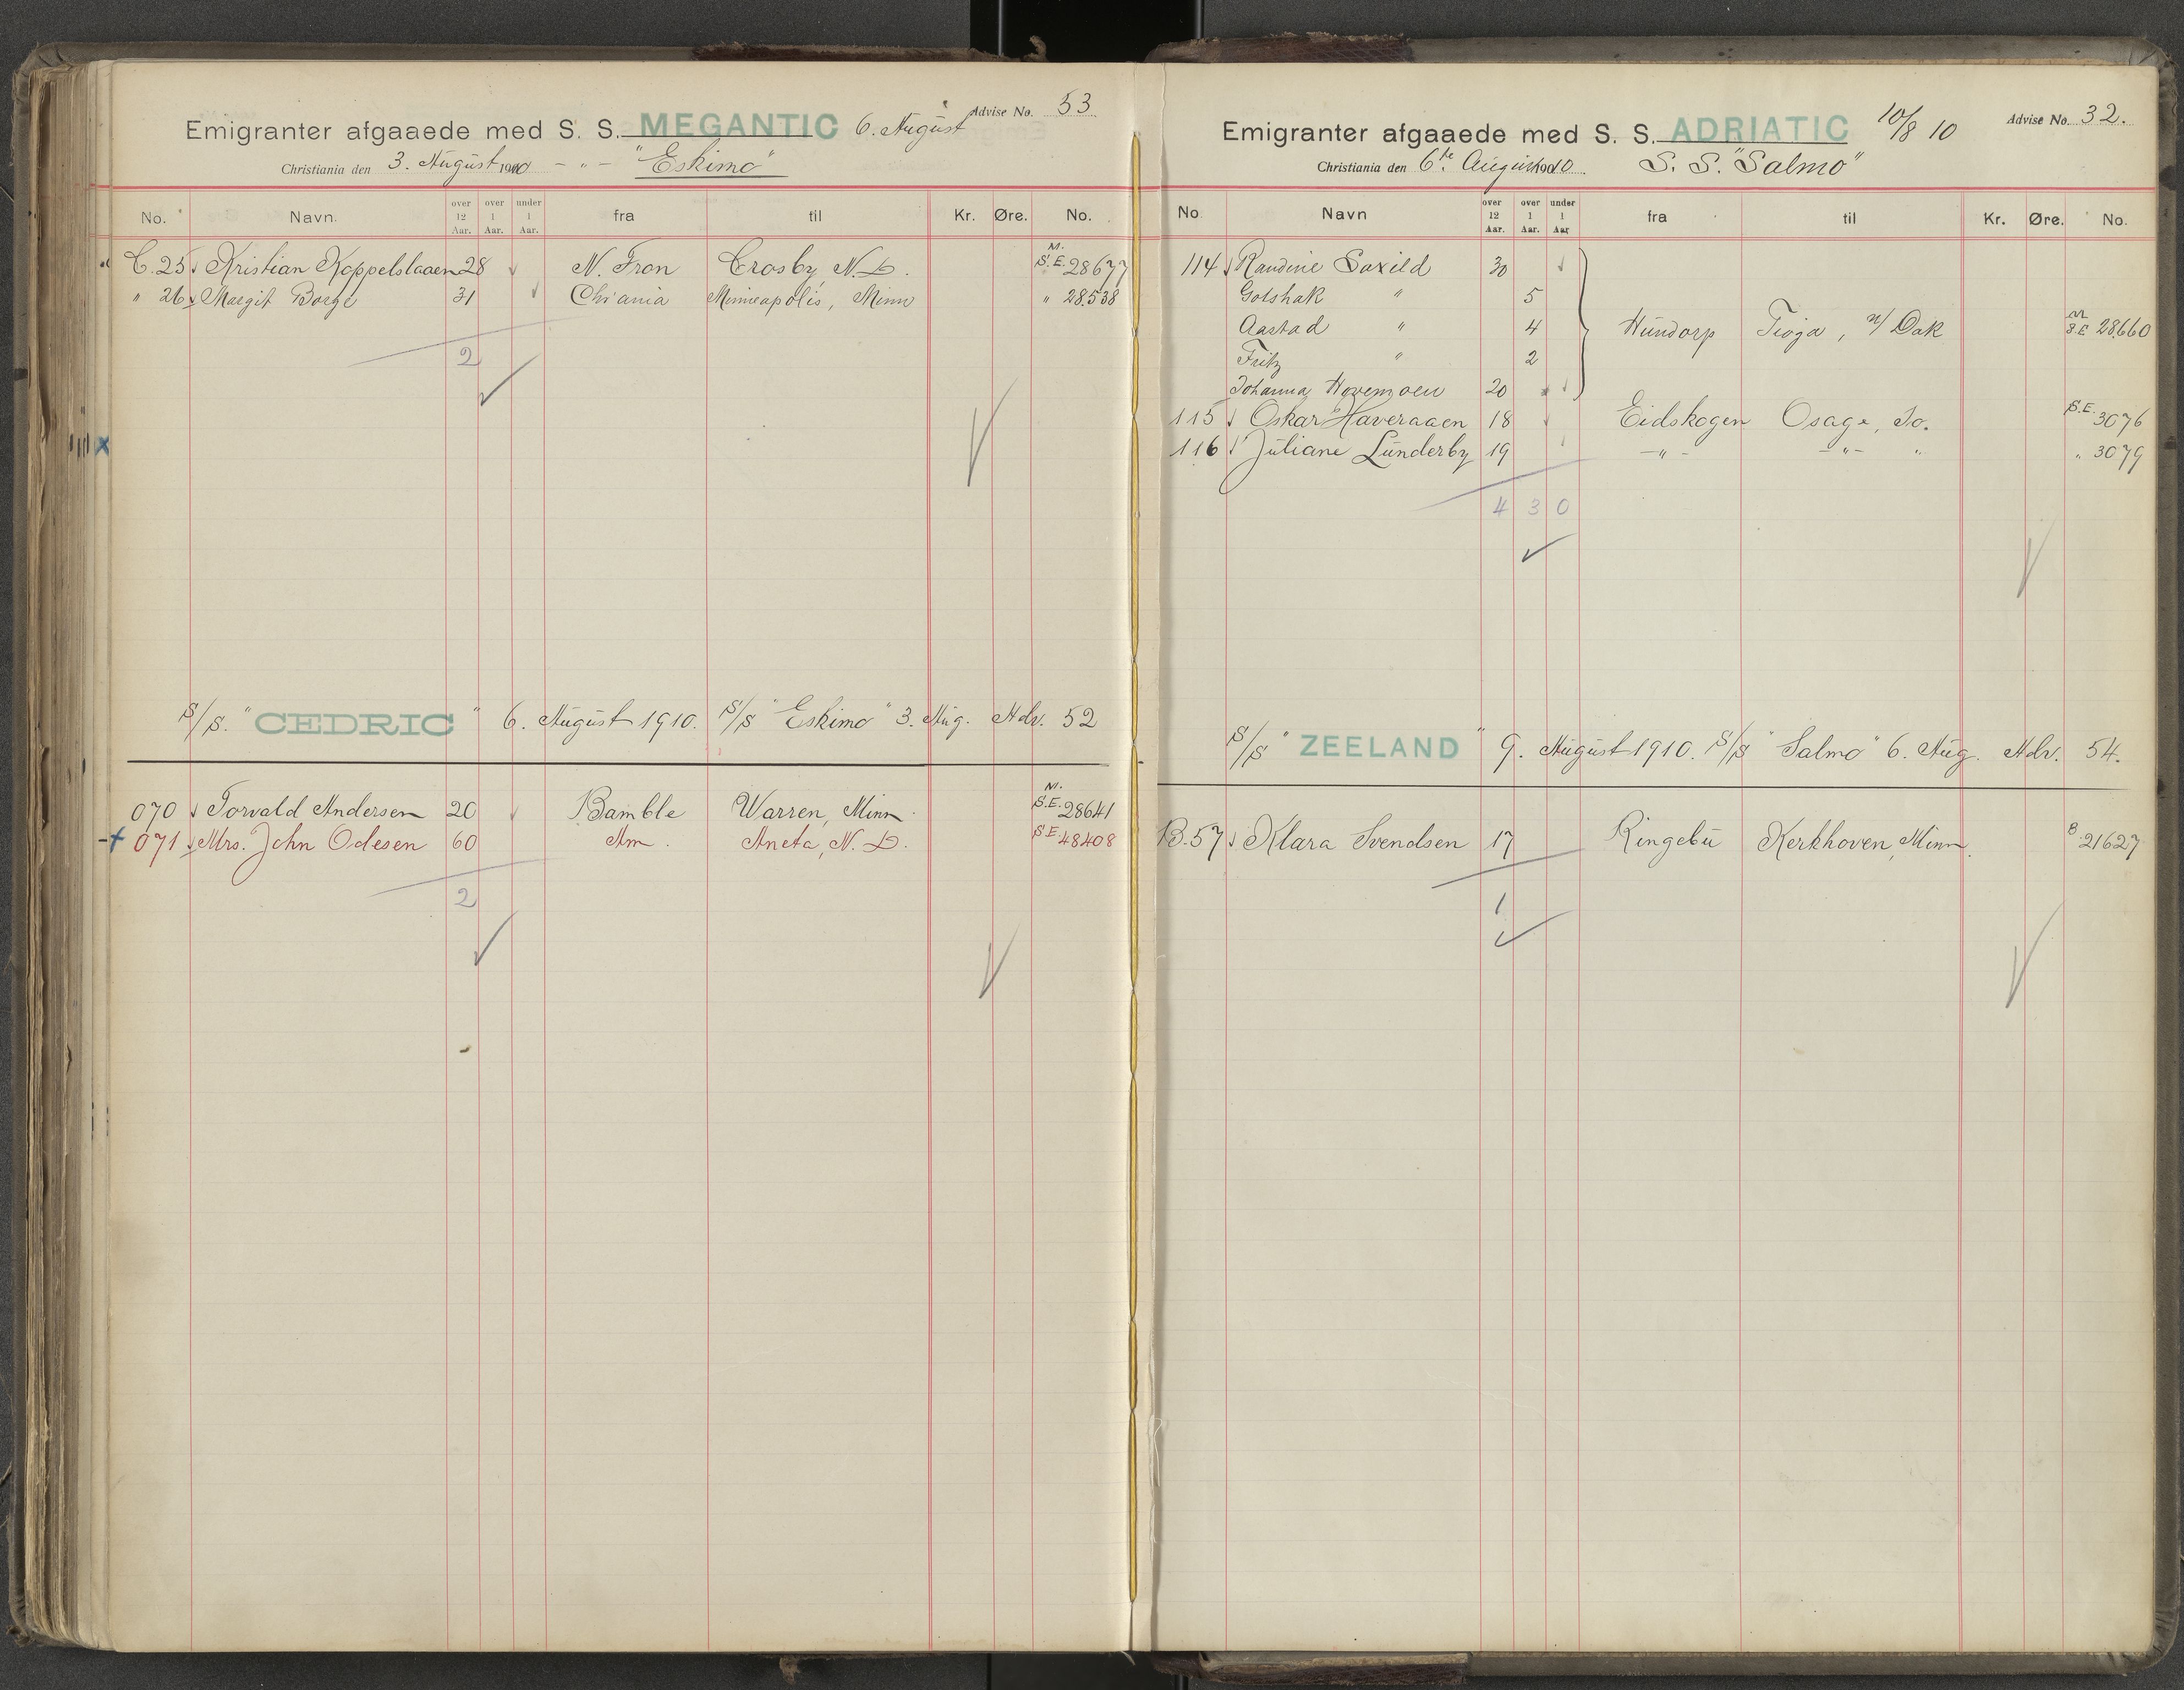 Emigranter afgaaede med S. S. MEGANTIC 6. August Advise No. 53
Christiania den 3. August 1910 - " - "Eskimo"
No. Navn. over 12 Aar. over 1 Aar. under 1 Aar. fra til Kr. Øre. No.
C. 25 Kristian Koppelslaaen 28 N. Fron Crosby, N. D. M. S.E. 28677
" 26 Margit Borge 31 Chr'ania Minneapolis, Minn " 28538
2
S/S. "CEDRIC" 6. August 1910. S/S "Eskimo" 3. Aug. Adv. 52
070 Torvald Andersen 20 Bamble Warren, Minn. M. S.E. 28641
071 Mrs. John Odesen 60 Am. Aneta, N. D. S.E. 48408
2
Emigranter afgaaede med S. S. ADRIATIC 10/8 10 Advise No. 32.
Christiania den 6te August 1910. S. S. "Salmo"
No. Navn over 12 Aar. over 1 Aar. under 1 Aar fra til Kr. Øre. No.
114 Randine Saxild 30
Gotshak " 5
Aastad " 4 Hundorp Tioga, N/ Dak M S.E 28660
Fritz " 2
Johanna Hovemoen 20
115 Oskar Haveraaen 18 Eidskogen Osage, Io. S.E. 3076
116 Juliane Lunderby 19 - " - - " - " " 3079
4 3 0
S/S "ZEELAND" 9. August 1910. S/S "Salmo" 6. Aug. Adv. 54.
B. 57 Klara Svendsen 17 Ringebu Kerkhoven, Minn. S. 21627
1